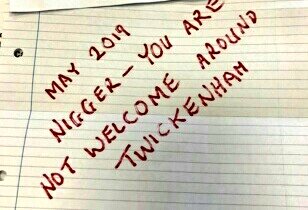 MAY 2019
NIGGER – YOU ARE
NOT WELCOME AROUND
TWICKENHAM